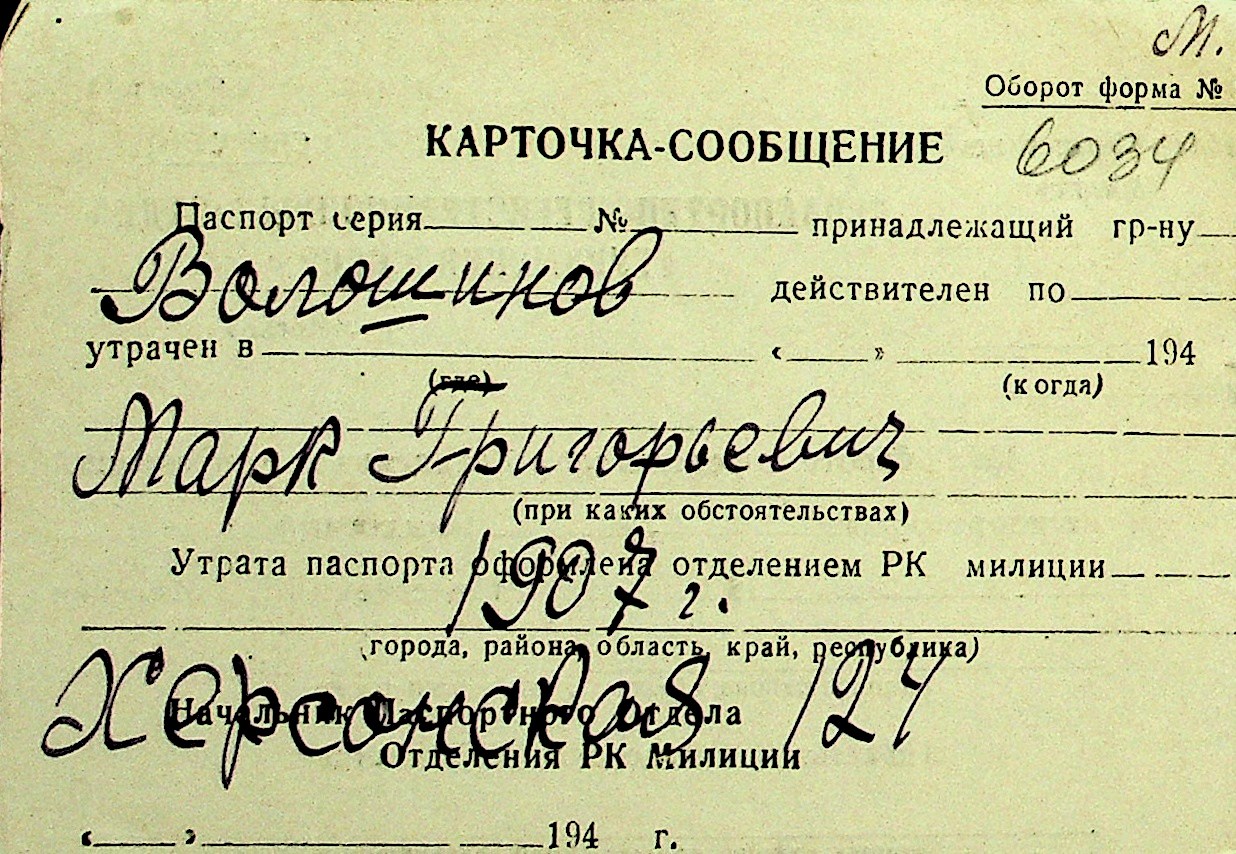 М.
Оборот форма №
КАРТОЧКА-СООБЩЕНИЕ 6034
Паспорт серия № принадлежащий гр-ну
Волошинов действителен по
утрачен в « » 194
(где) (когда)
Марк Григорьевич
(при каких обстоятельствах)
Утрата паспорта оформлена отделением РК милиции
1907 г.
(города, района, область, край, республика)
Херсонская 124
Начальник Паспортного Отдела
Отделения РК Милиции
« » 194 г.